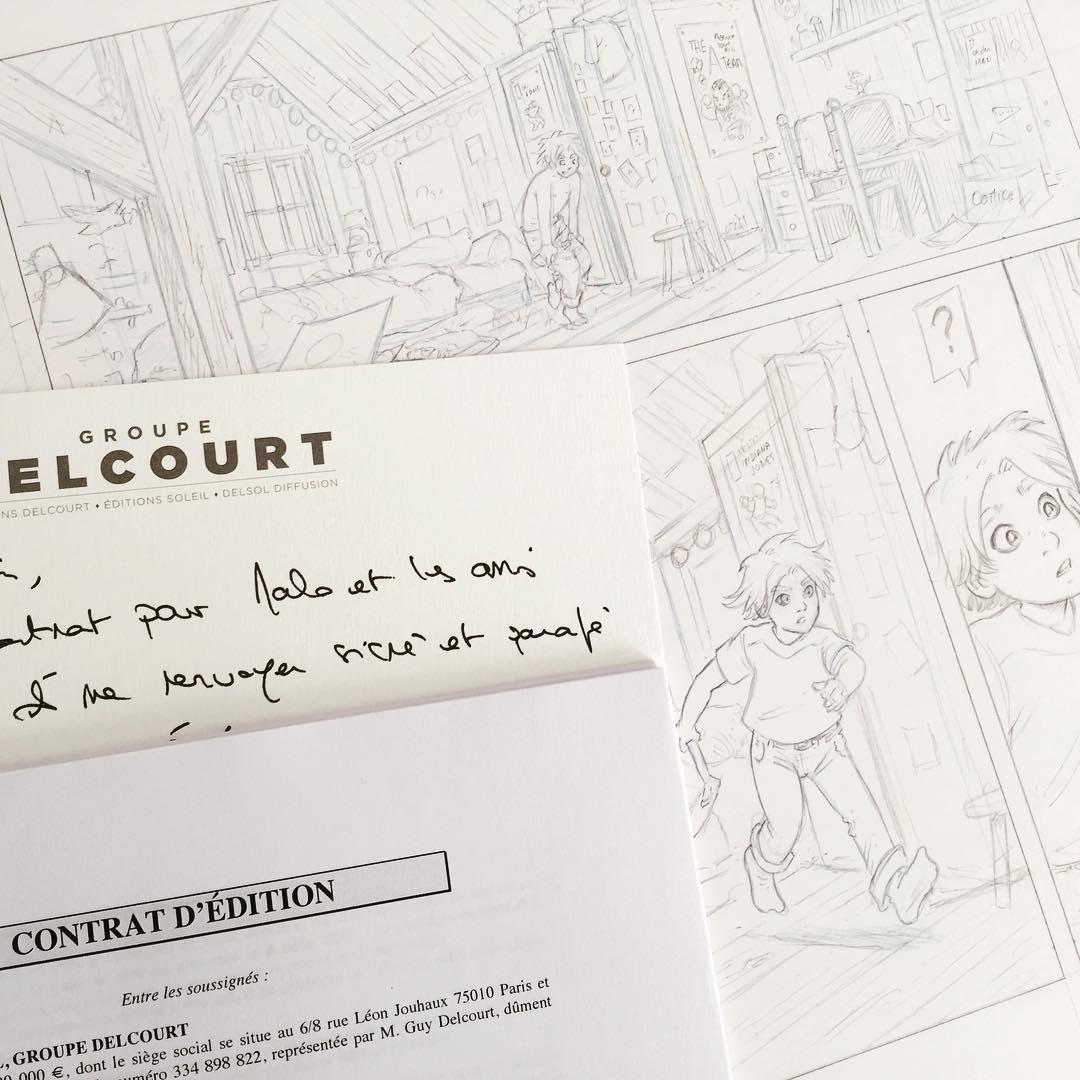 THE
A
TEAM
Comics
?
INDIANA
JONES
GROUPE
ELCOURT
NS DELCOURT • ÉDITIONS SOLEIL • DELSOL DIFFUSION
pour Malo et les amis
me renvoyer signé et paraphé
CONTRAT D'ÉDITION
Entre les soussignés :
, GROUPE DELCOURT
000 €, dont le siège social se situe au 6/8 rue Léon Jouhaux 75010 Paris et
numéro 334 898 822, représentée par M. Guy Delcourt, dûment